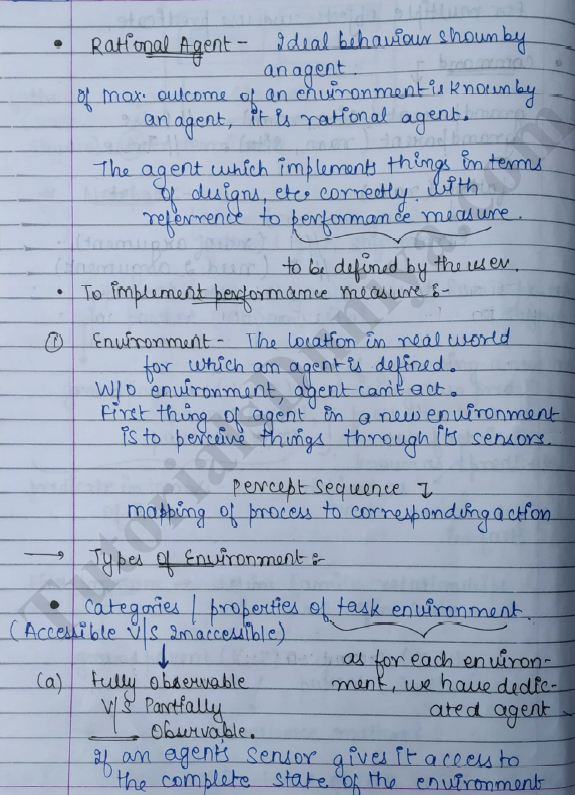 • Rational Agent - Ideal behaviour shown by
an agent.
If max. outcome of an environment is known by
an agent, it is rational agent.
The agent which implements things in terms
of designs, etc correctly. with
referrence to performance measure.
to be defined by the user.
• To implement performance measure :-
① Environment - The location in real world
for which an agent is defined.
W/o environment, agent can't act.
First thing of agent in a new environment
is to perceive things through its sensors.
Percept sequence
mapping of process to corresponding action
→ Types of Environment :-
• categories / properties of task environment.
(Accessible V/S Inaccessible)
as for each environ-
ment, we have dedic-
ated agent
(a) Fully observable
V/S Partially
observable.
If an agent's sensor gives it access to
the complete state of the environment
TutorialsDuniya.com